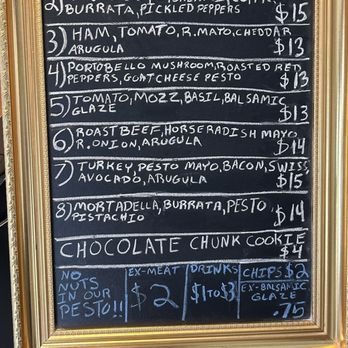 BURRATA, PICKLED PEPPERS $15
3) HAM, TOMATO, R. MAYO, CHEDDAR
ARUGULA $13
4) PORTOBELLO MUSHROOM, ROASTED RED
PEPPERS, GOAT CHEESE PESTO $13
5) TOMATO, MOZZ, BASIL, BALSAMIC
GLAZE $13
6) ROAST BEEF, HORSERADISH MAYO
R. ONION, ARUGULA $14
7) TURKEY, PESTO MAYO, BACON, SWISS
AVOCADO, ARUGULA $15
8) MORTADELLA, BURRATA, PESTO
PISTACHIO $14
CHOCOLATE CHUNK COOKIE
$4
NO
NUTS
IN OUR
PESTO!!
EX-MEAT
$2
DRINKS
$1 TO $3
CHIPS $2
EX-BALSAMIC
GLAZE
.75